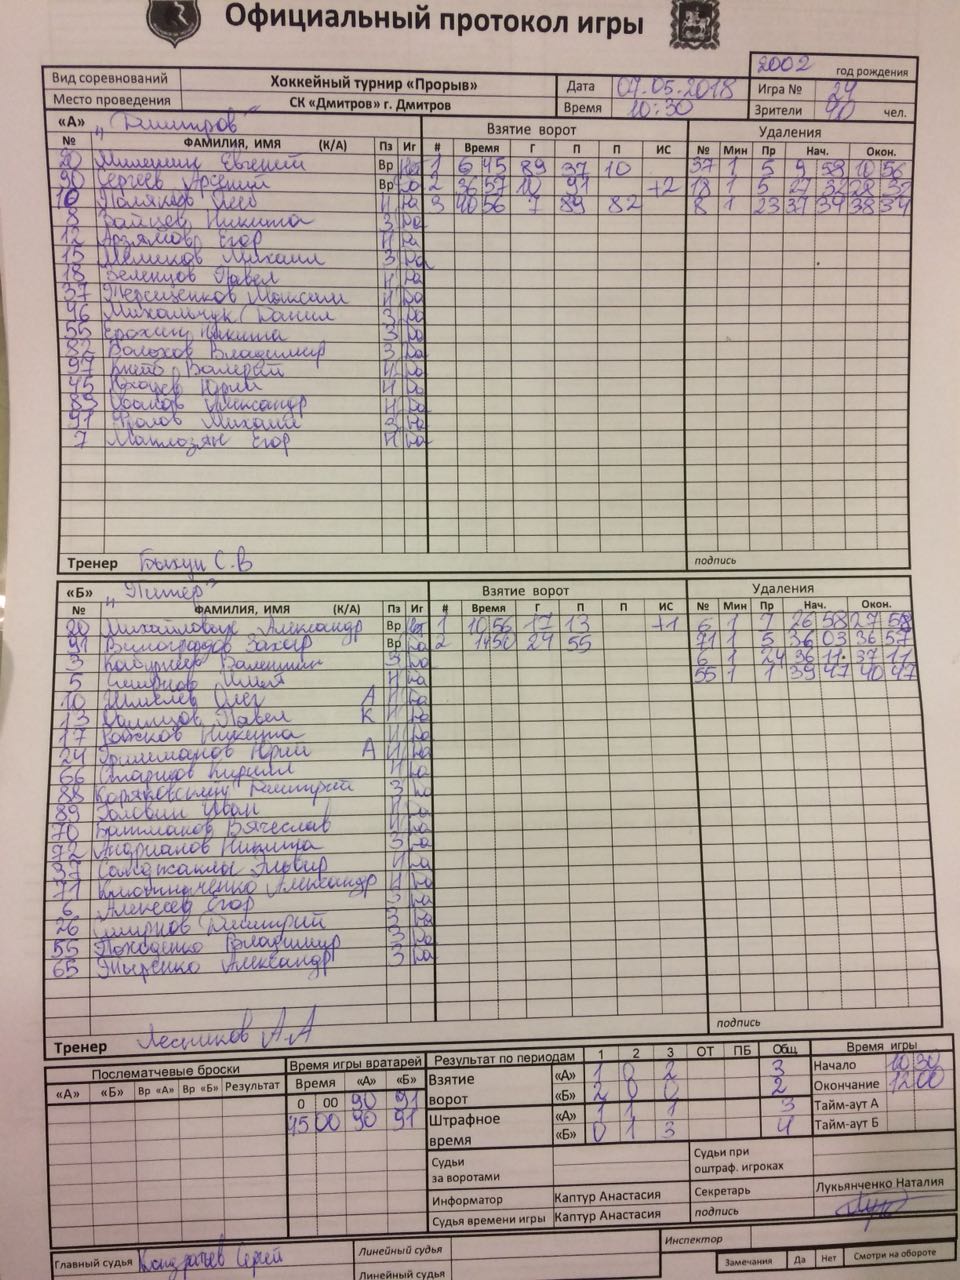 Официальный протокол игры
2002 год рождения
Вид соревнований Хоккейный турнир «Прорыв» Дата 07.05.2018 Игра № 24
Место проведения СК «Дмитров» г. Дмитров Время 10:30 Зрители 90 чел.
«А» "Дмитров" Взятие ворот Удаления
№ ФАМИЛИЯ, ИМЯ (К/А) Пз Иг # Время Г П П ИС № Мин Пр Нач. Окон.
20 Евгений Вр Нет 1 6 45 89 37 10 37 1 5 9 58 10 56
90 Сергеев Арсений Вр Да 2 36 57 10 91 +2 18 1 5 27 32 28 32
10 Поляков Глеб Н Да 3 40 56 7 89 82 8 1 23 37 34 38 34
8 Зайцев Никита З Да
12 Арзямов Егор Н Да
15 Михаил З Да
18 Зеленцов Павел Н Да
37 Терещенков Максим Н Да
96 Михальчук Данил З Да
55 Ерохин Никита З Да
82 Волохов Владимир З Да
97 Валерий Н Да
45 Юрий Н Да
89 Александр Н Да
91 Фролов Михаил З Да
7 Маилозян Егор Н Да
Тренер Быкун С.В подпись
«Б» "Питер" Взятие ворот Удаления
№ ФАМИЛИЯ, ИМЯ (К/А) Пз Иг # Время Г П П ИС № Мин Пр Нач. Окон.
20 Михайлович Александр Вр Нет 1 10 56 17 13 +1 6 1 7 26 58 27 58
91 Виноградов Захар Вр Да 2 14 50 24 55 71 1 5 36 03 36 57
3 Валентин З Да 6 1 24 36 11 37 11
5 Смирнов Н Да 55 1 1 39 47 40 47
10 Шмелев Олег А Н Да
13 Павел К Н Да
17 Никита Н Да
24 Юрий А Н Да
66 Кирилл Н Да
88 Коряковский Дмитрий З Да
89 Головин Иван Н Да
70 Вячеслав Н Да
72 Андрианов Никита З Да
37 Эльвир Н Да
71 Александр Н Да
6 Алексеев Егор З Да
26 Смирнов Дмитрий З Да
55 Владимир З Да
65 Александр З Да
Тренер Лесников А.А подпись
Послематчевые броски Время игры вратарей Результат по периодам 1 2 3 ОТ ПБ Общ Время игры
«А» «Б» Вр «А» Вр «Б» Результат Время «А» «Б» Взятие ворот «А» 1 0 2 3 Начало 10 30
0 00 90 91 «Б» 2 0 0 2 Окончание 12 00
45 00 90 91 Штрафное время «А» 1 1 1 3 Тайм-аут А
«Б» 0 1 3 4 Тайм-аут Б
Судьи за воротами Судьи при оштраф. игроках
Информатор Каптур Анастасия Секретарь Лукьянченко Наталия
Судья времени игры Каптур Анастасия подпись
Главный судья Кондратьев Сергей Линейный судья Инспектор
Линейный судья Замечания Да Нет Смотри на обороте